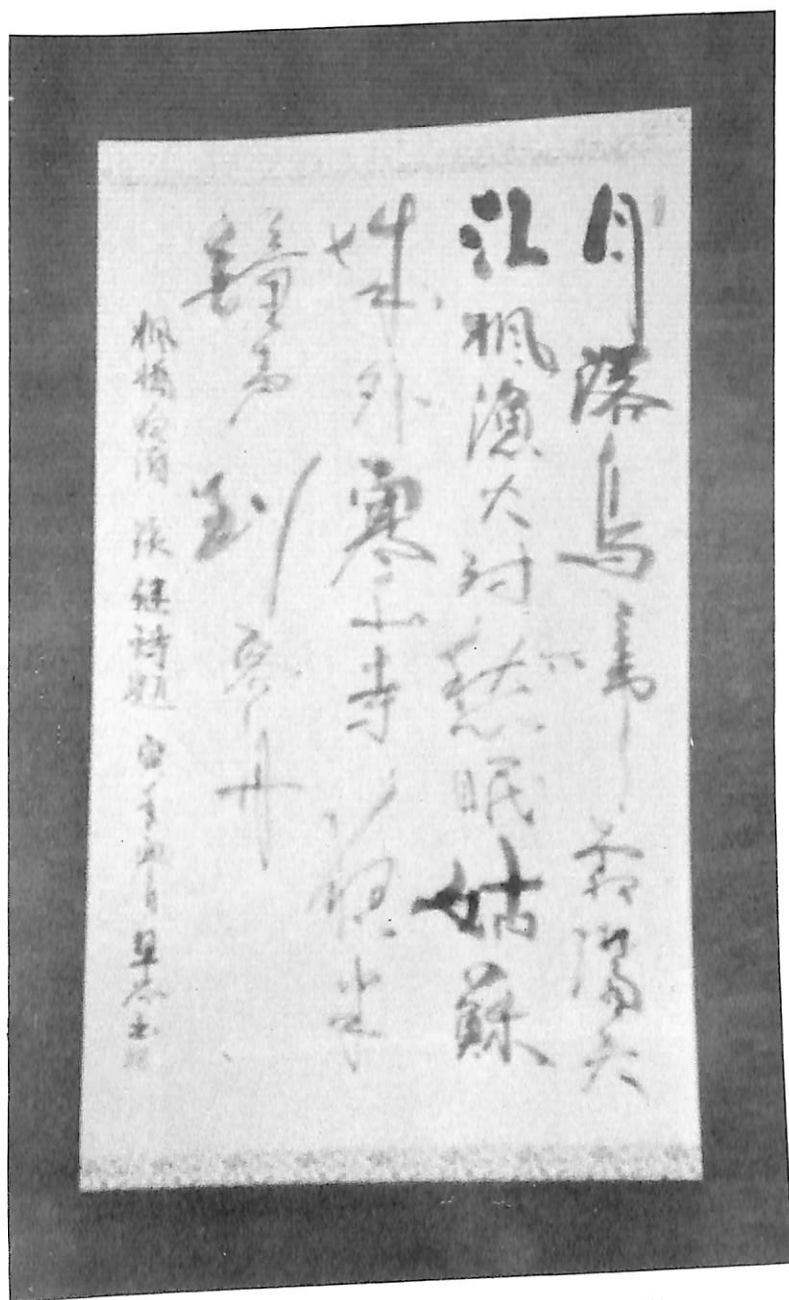 月落烏啼霜滿天
江楓漁火対愁眠姑蘇
城外寒山寺夜半
鐘声到客舟
楓橋夜泊 張継詩題